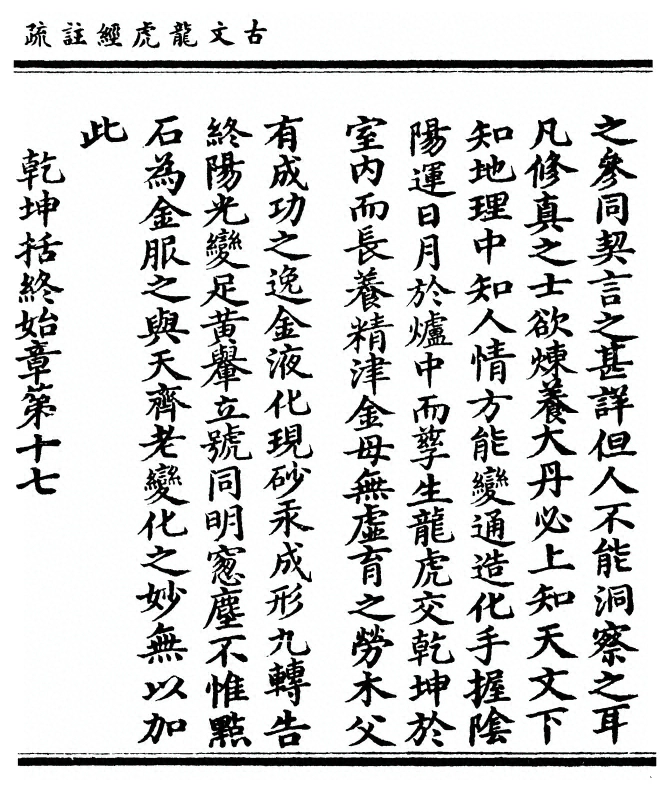 古文龍虎經註疏
之參同契言之甚詳但人不能洞察之耳
凡修真之士欲煉養大丹必上知天文下
知地理中知人情方能變通造化手握陰
陽運日月於爐中而孳生龍虎交乾坤於
室內而長養精津金母無虛育之勞木父
有成功之逸金液化現砂汞成形九轉告
終陽光變足黃轝立號同明窓塵不惟點
石為金服之與天齊老變化之妙無以加
此
乾坤括終始章第十七